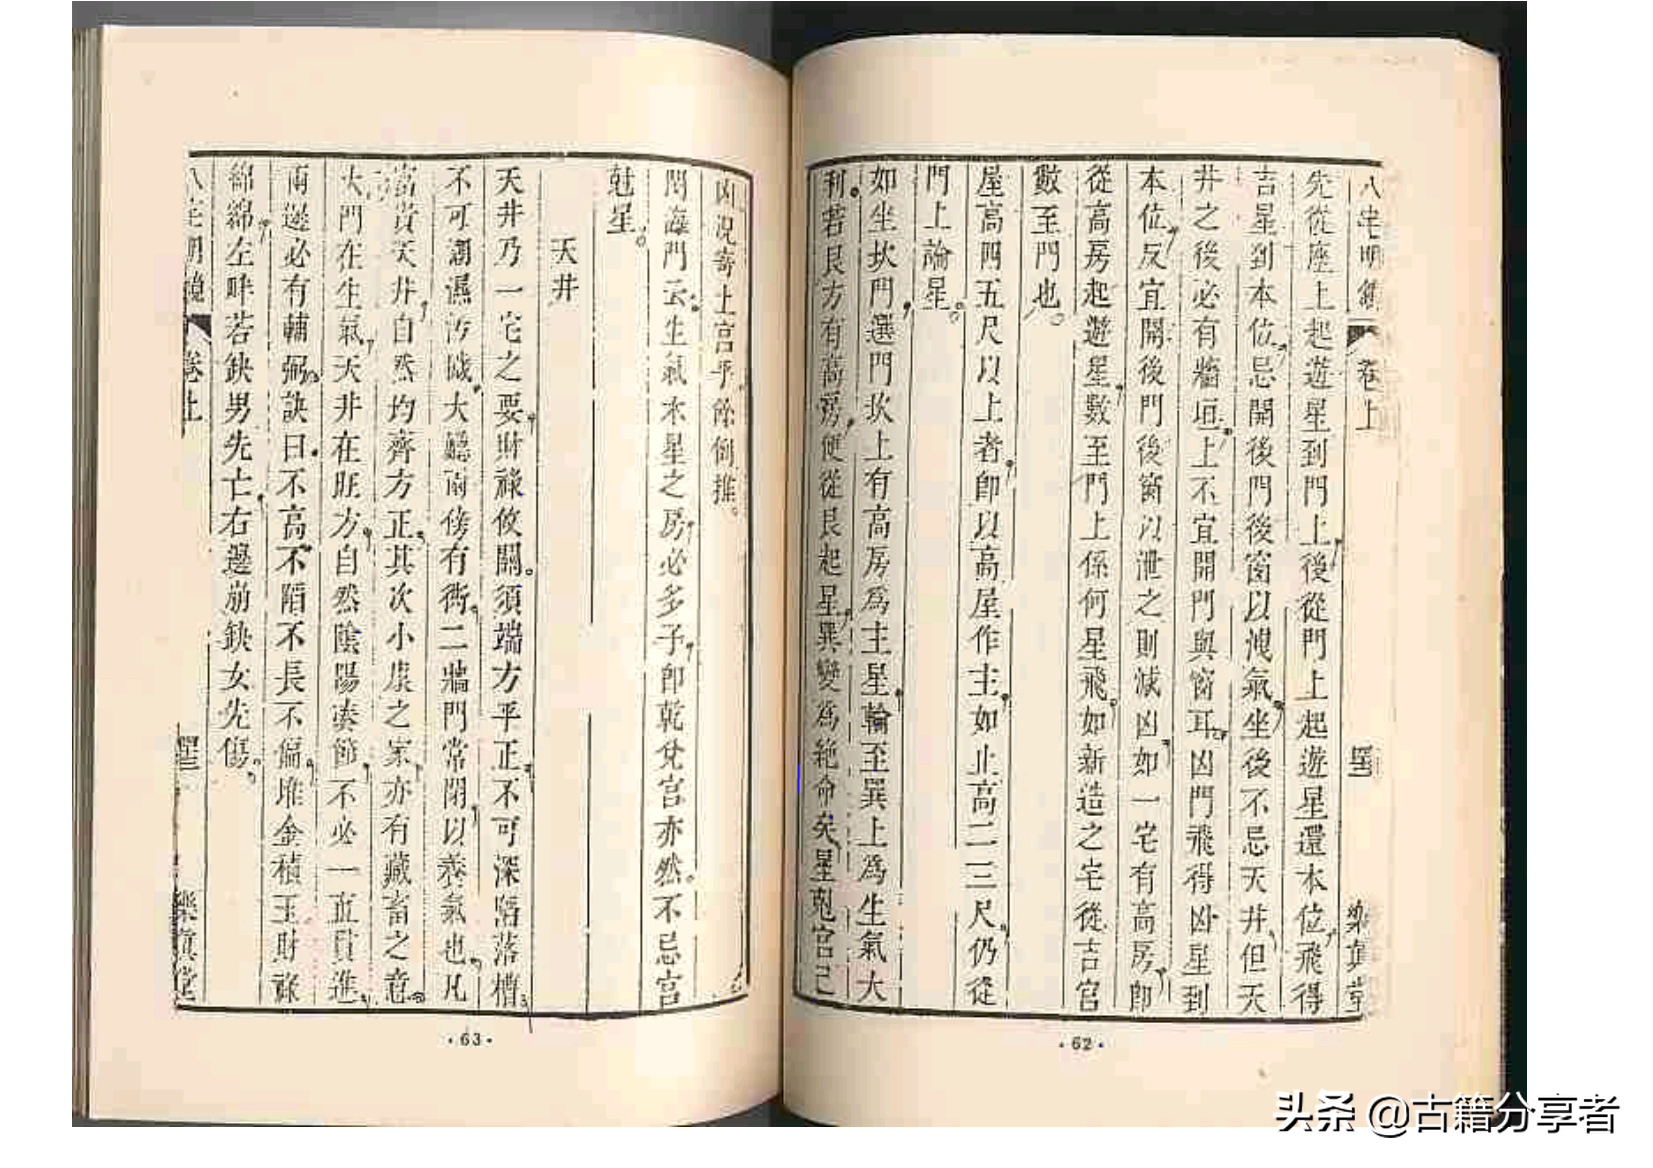 八宅明鏡 卷上 樂真堂
先從座上起遊星到門上後從門上起遊星還本位飛得
吉星到本位忌開後門後窗以洩氣坐後不忌天井但天
井之後必有牆垣上不宜開門與窗耳凶門飛得凶星到
本位反宜開後門後窗以泄之則減凶如一宅有高房即
從高房起遊星數至門上係何星飛如新造之宅從吉宮
數至門也
屋高四五尺以上者即以高屋作主如止高二三尺仍從
門上論星
如坐坎門選門坎上有高房為主星輪至巽上為生氣大
利若艮方有高房便從艮起星巽變為絕命矣星剋宮己
·62·
凶況寄土宮乎餘倒推
関海門云生氣木星之房必多子即乾兌宮亦然不忌宮
尅星
天井
天井乃一宅之要財祿攸關須端方平正不可深陷落槽
不可潮濕汚穢大廳兩傍有衖二牆門常閉以養氣也凡
富貴天井自然均齊方正其次小康之家亦有藏蓄之意
大門在生氣天井在旺方自然陰陽湊節不必一直貫進
兩邊必有輔弼訣曰不高不陷不長不偏堆金積玉財祿
綿綿左畔若缺男先亡右邊崩缺女先傷
八宅明鏡 卷上 樂真堂
·63·
头条 @古籍分享者